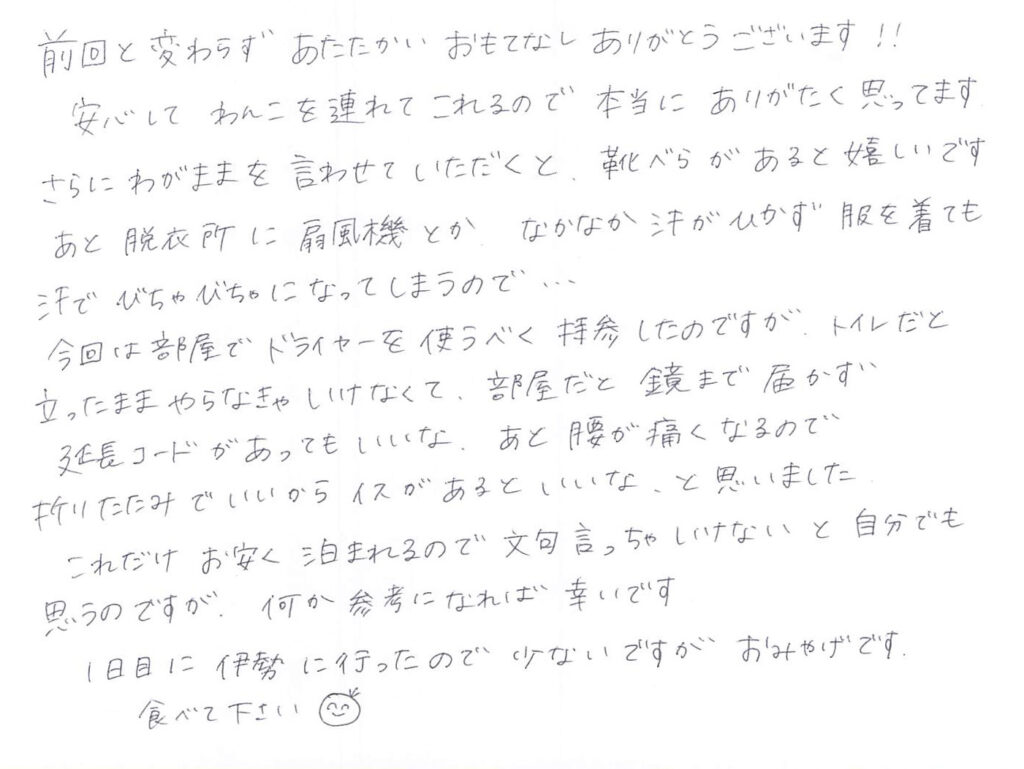 前回と変わらず あたたかい おもてなし ありがとうございます!!
安心して わんこを連れてこれるので 本当に ありがたく思ってます
さらにわがままを言わせていただくと、靴べらがあると嬉しいです
あと 脱衣所に 扇風機とか、なかなか汗がひかず 服を着ても
汗で びちゃびちゃになってしまうので…
今回は部屋でドライヤーを使うべく 持参したのですが、トイレだと
立ったまま やらなきゃ いけなくて、部屋だと 鏡まで 届かず
延長コードがあってもいいな、あと腰が痛くなるので
折りたたみでいいから イスがあるといいな、と思いました
これだけ お安く 泊まれるので 文句言っちゃいけないと 自分でも
思うのですが、何か参考になれば 幸いです
1日目に 伊勢に行ったので 少ないですが おみやげです.
食べて下さい